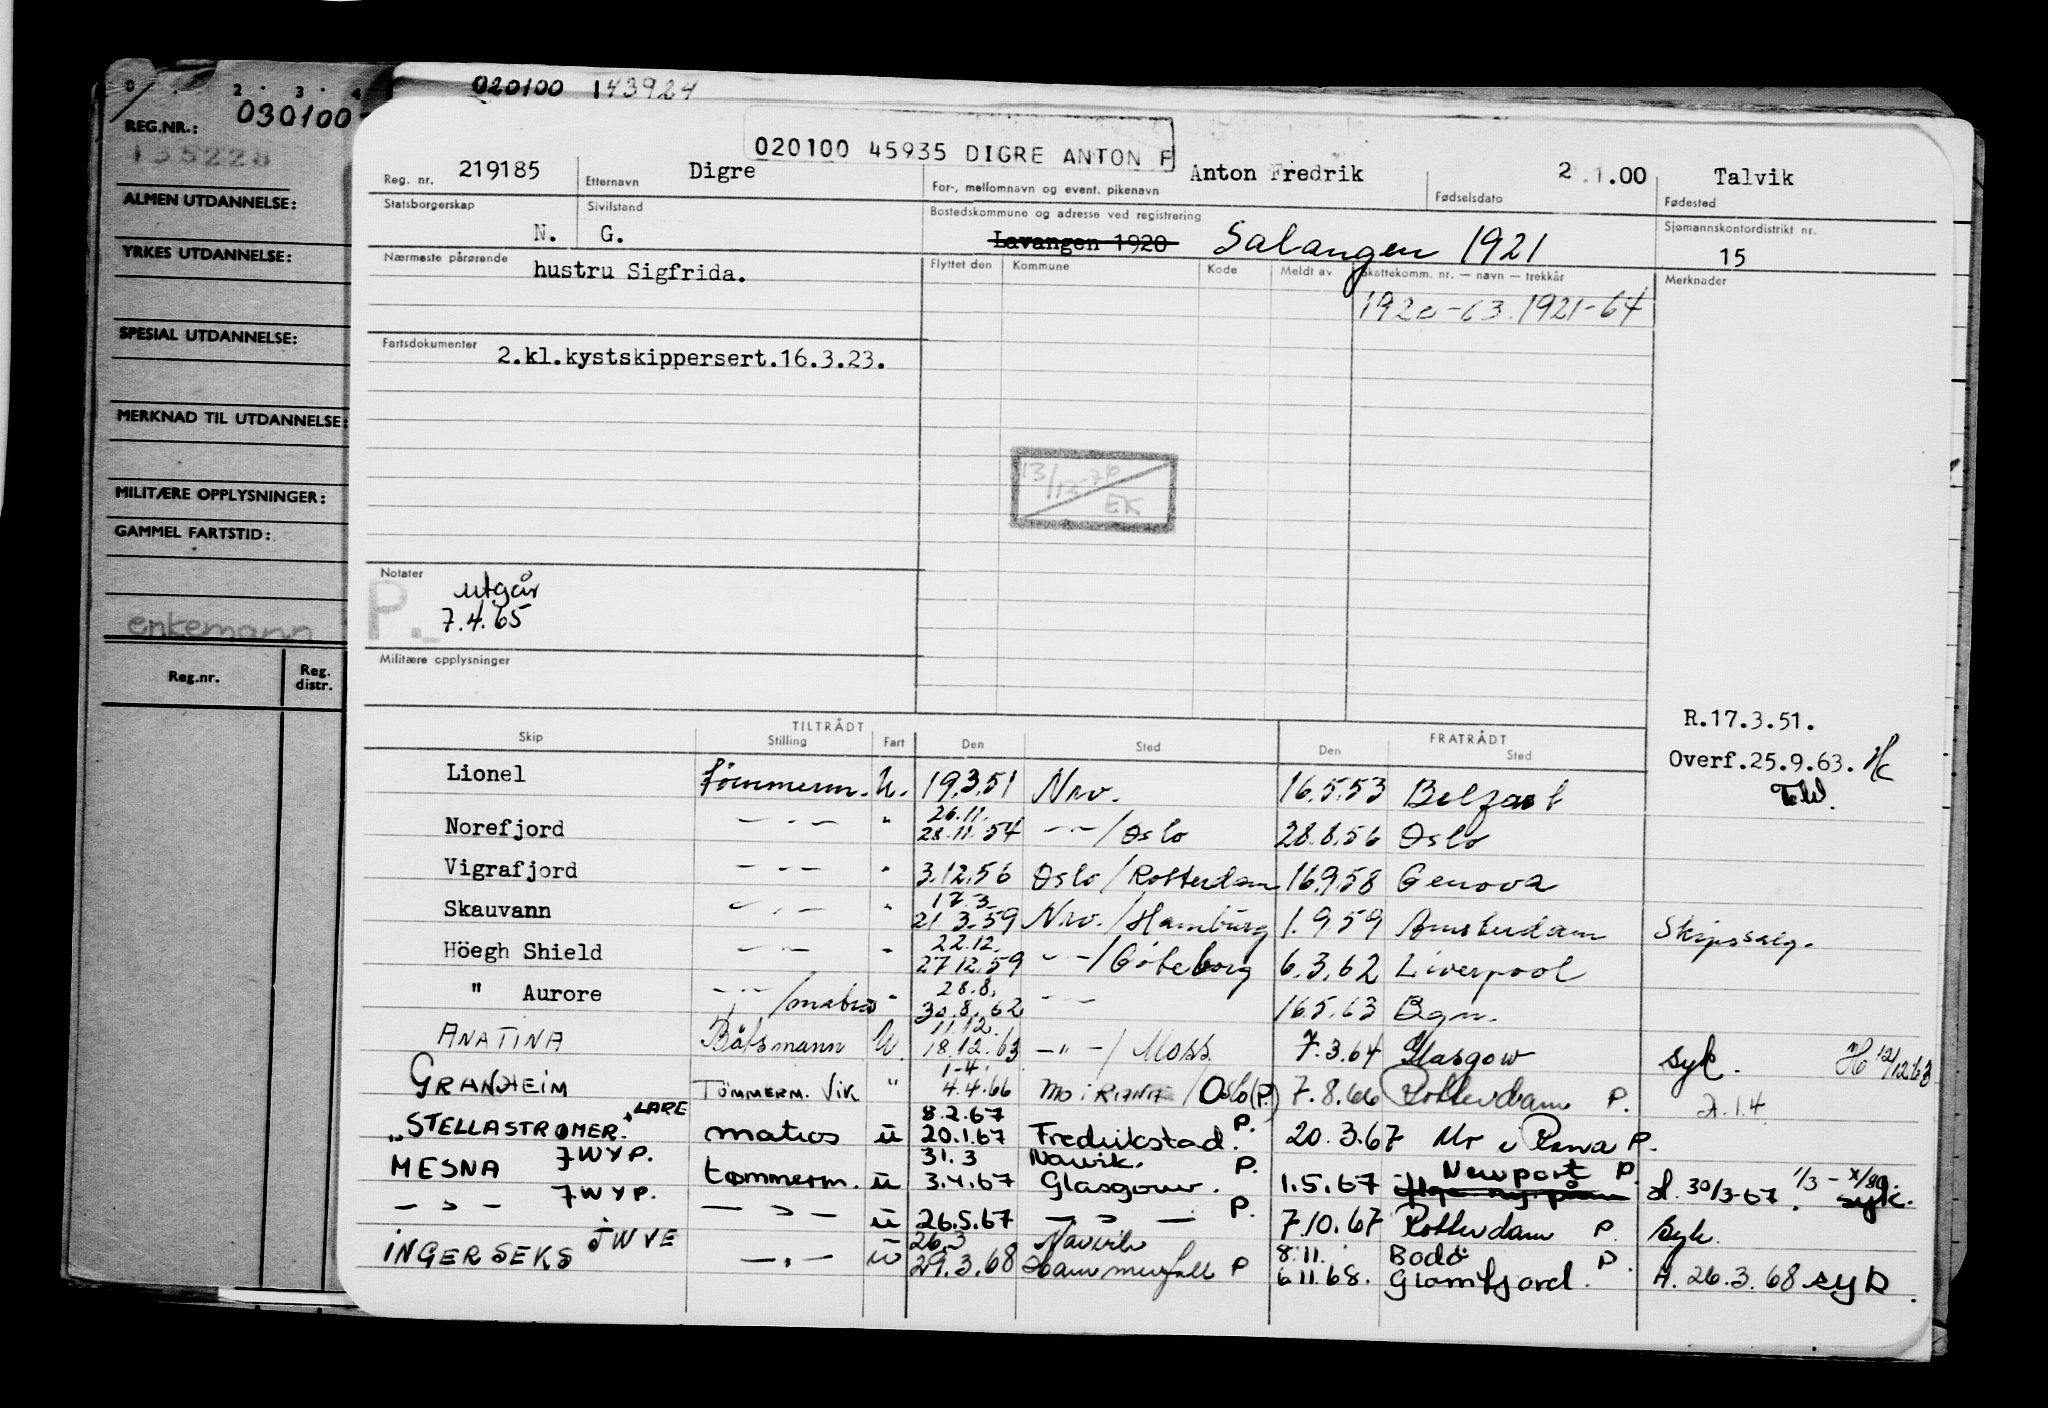 0 . 2 . 3 . 4
REG.NR.: 030100
135228
ALMEN UTDANNELSE:
YRKES UTDANNELSE:
SPESIAL UTDANNELSE:
MERKNAD TIL UTDANNELSE:
MILITÆRE OPPLYSNINGER:
GAMMEL FARTSTID:
enkemann
Reg.nr. Reg. distr.
020100 143924
020100 45935 DIGRE ANTON F
Reg. nr. 219185 Etternavn Digre For-, mellomnavn og event. pikenavn Anton Fredrik Fødselsdato 2.1.00 Fødested Talvik
Statsborgerskap N. Sivilstand G. Bostedskommune og adresse ved registrering Lavangen 1920 Salangen 1921 Sjømannskontordistrikt nr. 15
Nærmeste pårørende hustru Sigfrida. Flyttet den Kommune Kode Meldt av Skattekomm. nr. — navn — trekkår Merknader
1920-63. 1921-64
Fartsdokumenter 2.kl.kystskippersert.16.3.23.
13/12-76
EK
Notater utgår
P. 7.4.65
Militære opplysninger
R.17.3.51.
Overf.25.9.63.
TILTRÅDT FRATRÅDT
Skip Stilling Fart Den Sted Den Sted
Lionel tömmerm. U. 19.3.51 Nrv. 16.5.53 Belfast
26.11.
Norefjord — " — " 28.11.54 — " — / Oslo 28.8.56 Oslo
Vigrafjord — " — " 3.12.56 Oslo / Rotterdam 16.9.58 Genova
17.3
Skauvann — " — " 21.3.59 Nrv. / Hamburg 1.9.59 Amsterdam Skipssalg.
22.12.
Höegh Shield — " — " 27.12.59 — " — / Göteborg 6.3.62 Liverpool
28.8.
" Aurore — " — / matros " 30.8.62 — " — 16.5.63 Bgn.
11.12.
ANATINA Båtsmann U. 18.12.63 — " — / Moss 7.3.64 Glasgow syk. H 12/12 63
1-4.
GRANHEIM TÖMMERM. Vik " 4.4.66 MO i RANA / Oslo (P.) 7.8.66 Rotterdam P. 2.1.4
LARE 8.2.67
"STELLASTRØMER" matros U 20.1.67 Fredrikstad. P. 20.3.67 Mo i Rana P.
JWYP. 31.3 Narvik. P. Newport P.
MESNA tømmerm. U 3.4.67 Glasgow. 1.5.67 d. 30/3-67. 1/3 - syk.
— " — JWYP. — " — U 26.5.67 — " — P. 7.10.67 Rotterdam P. Syk.
JWVE 26.3 Narvik 8.11. Bodö P.
INGERSEKS — " — U 29.3.68 P 6.11.68. Glomfjord. A. 26.3.68 syk.